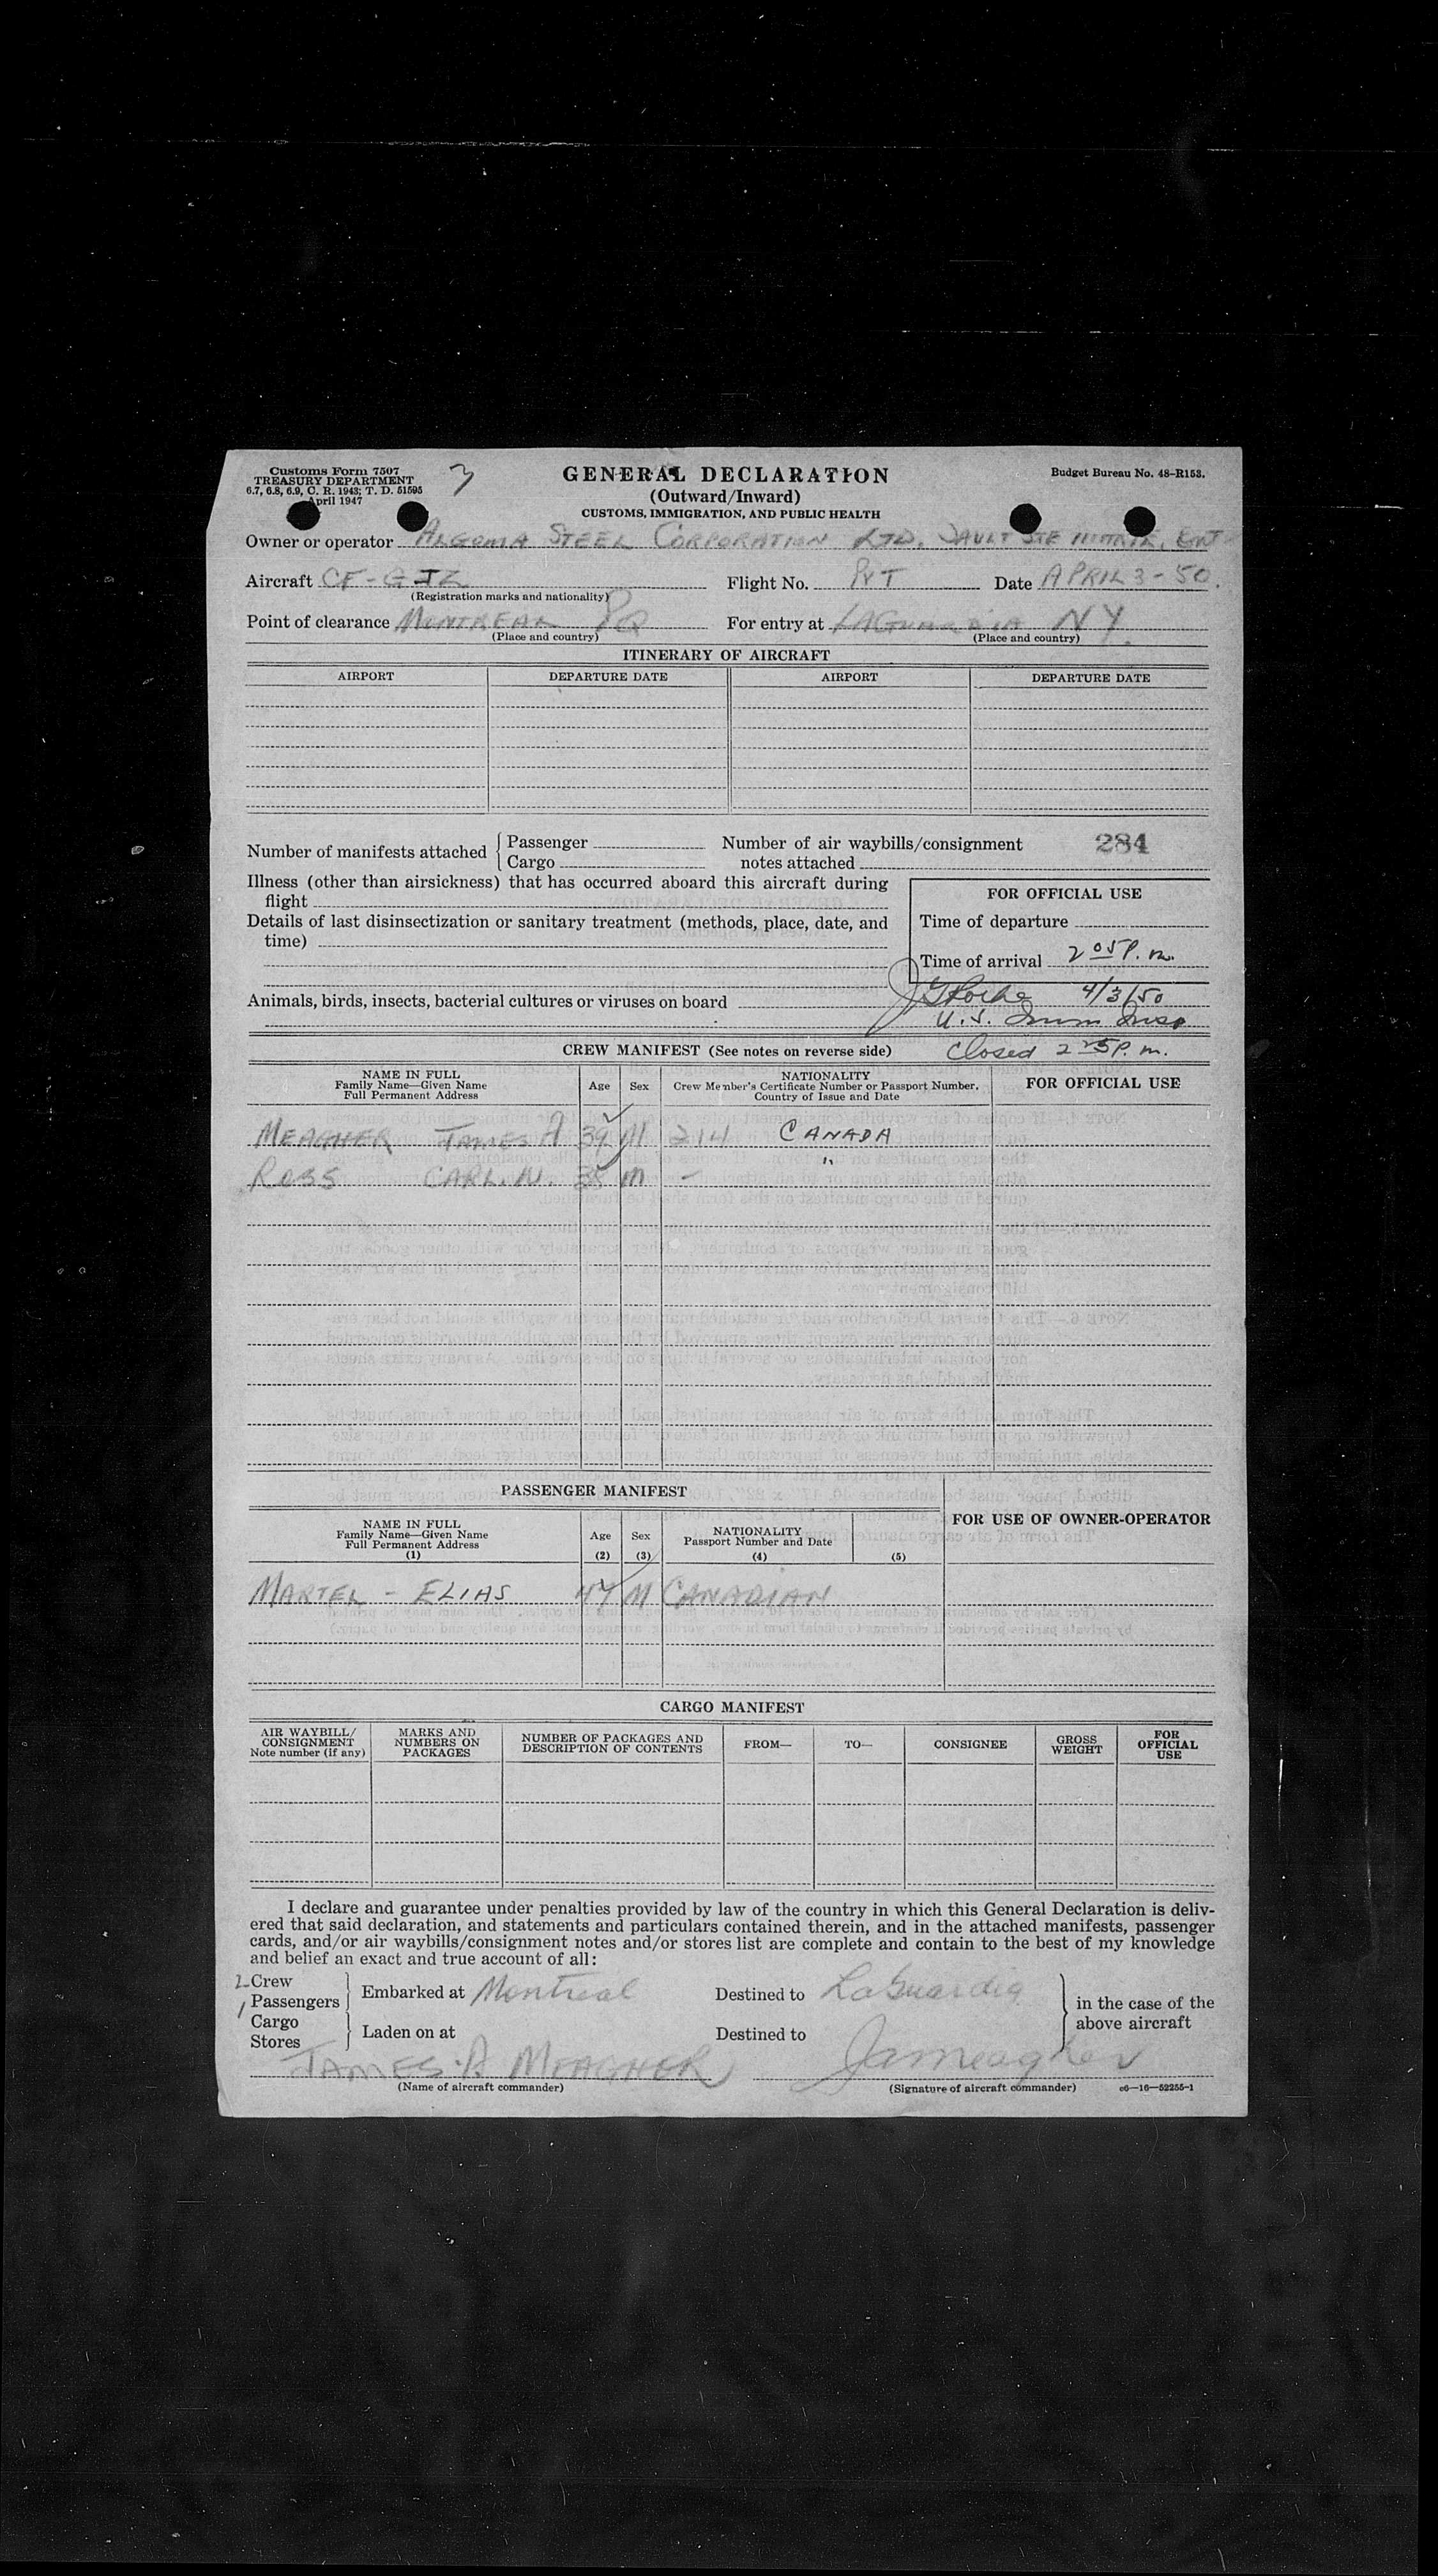 Customs Form 7507
TREASURY DEPARTMENT
6.7, 6.8, 6.9, C. R. 1943; T. D. 51595
April 1947
3
GENERAL DECLARATION
(Outward/Inward)
CUSTOMS, IMMIGRATION, AND PUBLIC HEALTH
Budget Bureau No. 48-R153.
Owner or operator ALGOMA STEEL CORPORATION LTD. SAULT STE MARIE, ONT
Aircraft CF-GJZ Flight No. PVT Date APRIL 3-50.
(Registration marks and nationality)
Point of clearance MONTREAL PQ For entry at LAGUARDIA NY.
(Place and country) (Place and country)
ITINERARY OF AIRCRAFT
AIRPORT DEPARTURE DATE AIRPORT DEPARTURE DATE
Number of manifests attached Passenger Cargo
Number of air waybills/consignment notes attached
284
Illness (other than airsickness) that has occurred aboard this aircraft during
flight
Details of last disinsectization or sanitary treatment (methods, place, date, and
time)
FOR OFFICIAL USE
Time of departure
Time of arrival 2 05 P. m.
Animals, birds, insects, bacterial cultures or viruses on board
4/3/50
U. S. Imm Insp
Closed 2 25 P. m.
CREW MANIFEST (See notes on reverse side)
NAME IN FULL
Family Name—Given Name
Full Permanent Address
Age
Sex
NATIONALITY
Crew Member's Certificate Number or Passport Number,
Country of Issue and Date
FOR OFFICIAL USE
MEAGHER JAMES A 39 M 214 CANADA
ROSS CARL. N. 35 M - "
PASSENGER MANIFEST
NAME IN FULL
Family Name—Given Name
Full Permanent Address
(1)
Age
(2)
Sex
(3)
NATIONALITY
Passport Number and Date
(4)
(5)
FOR USE OF OWNER-OPERATOR
MARTEL - ELIAS 47 M CANADIAN
CARGO MANIFEST
AIR WAYBILL/
CONSIGNMENT
Note number (if any)
MARKS AND
NUMBERS ON
PACKAGES
NUMBER OF PACKAGES AND
DESCRIPTION OF CONTENTS
FROM—
TO—
CONSIGNEE
GROSS
WEIGHT
FOR
OFFICIAL
USE
I declare and guarantee under penalties provided by law of the country in which this General Declaration is deliv-
ered that said declaration, and statements and particulars contained therein, and in the attached manifests, passenger
cards, and/or air waybills/consignment notes and/or stores list are complete and contain to the best of my knowledge
and belief an exact and true account of all:
2 Crew
1 Passengers
Embarked at Montreal Destined to LaGuardia
in the case of the
above aircraft
Cargo
Stores
Laden on at Destined to
JAMES A MEAGHER JAMeagher
(Name of aircraft commander) (Signature of aircraft commander) c6—16—52255-1